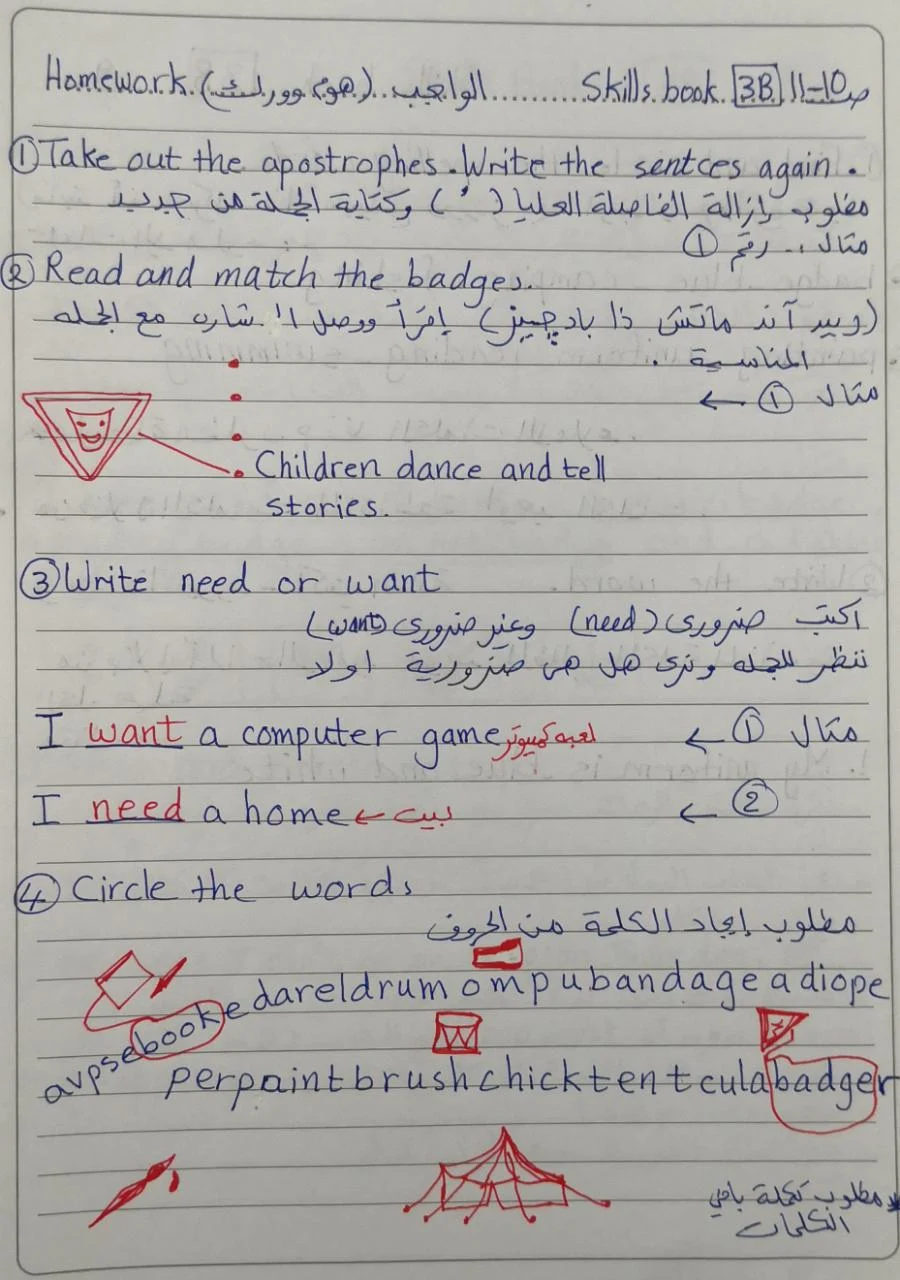 Homework. (هوم وورك) الواجب.......... Skills. book. 3B ص 10-11
① Take out the apostrophes. Write the sentces again.
مطلوب إزالة الفاصلة العليا ( ' ) وكتابة الجملة من جديد
مثال .. رقم ①
② Read and match the badges.
(رييد آند ماتش ذا بادجيز) إقرأ ووصل الشاره مع الجمله
المناسبة .
مثال ① ←
Children dance and tell
stories.
③ Write need or want
اكتب ضروري (need) وغير ضروري (want)
ننظر للجمله ونرى هل هي ضرورية اولا
I want a computer game لعبه كمبيوتر مثال ① ←
I need a home ← بيت ② ←
④ Circle the words
مطلوب إيجاد الكلمة من الحروف
avpsebookedareldrumompubandageadiope
perpaintbrushchicktentculabadger
* مطلوب تكملة باقي
الكلمات